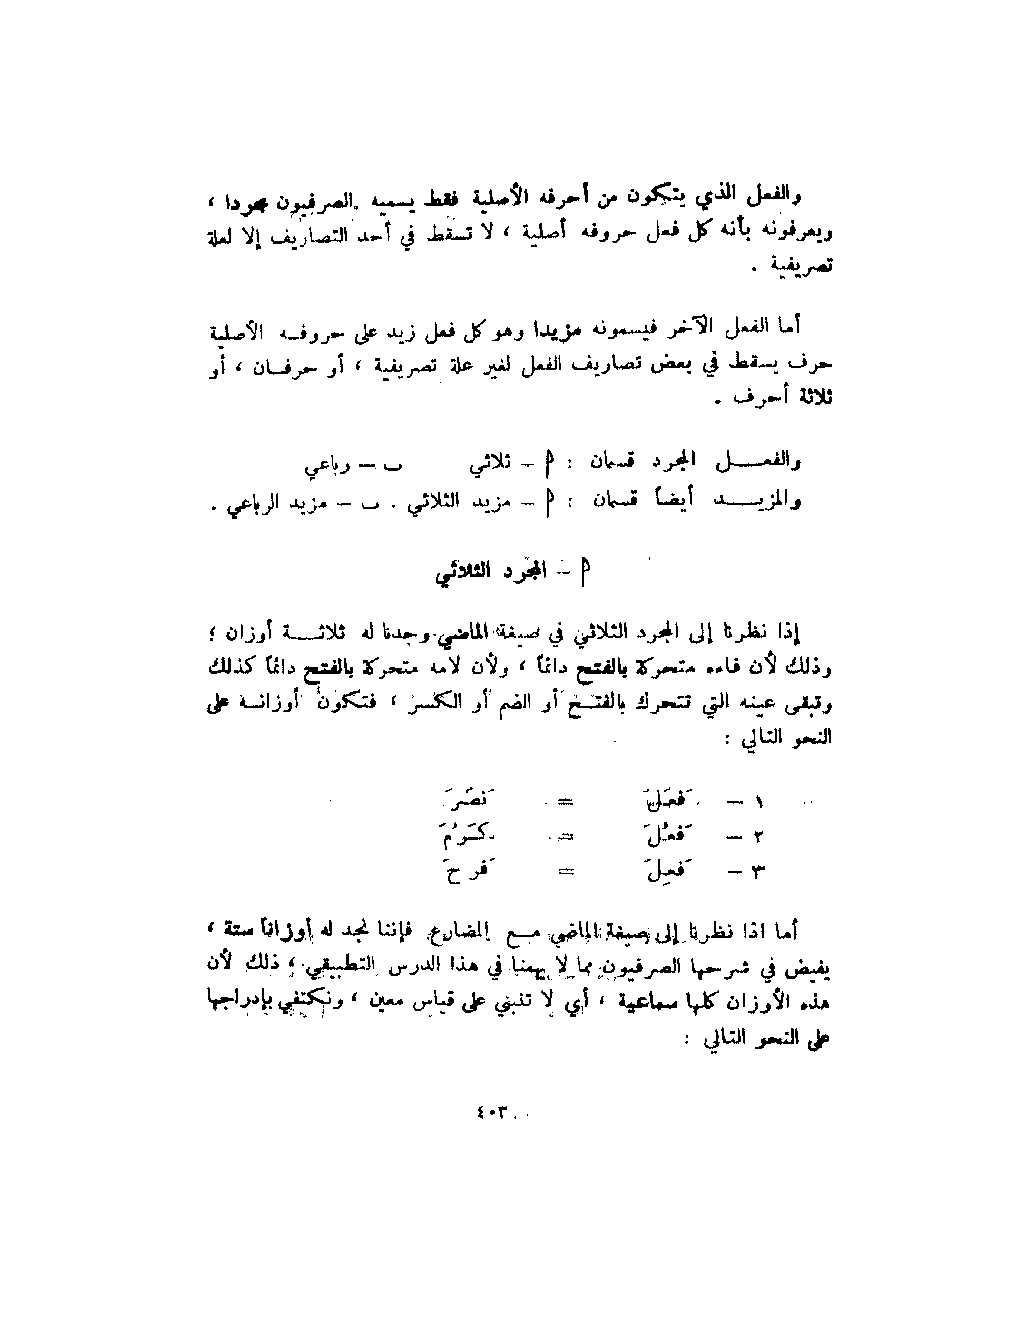 والفعل الذي يتكون من أحرفه الأصلية فقط يسميه الصرفيون مجردا ،
ويعرفونه بأنه كل فعل حروفه أصلية ، لا تسقط في أحد التصاريف إلا لعلة
تصريفية .
أما الفعل الآخر فيسمونه مزيدا وهو كل فعل زيد على حروفـه الأصلية
حرف يسقط في بعض تصاريف الفعل لغير علة تصريفية ، أو حرفـان ، أو
ثلاثة أحرف .
والفعـــل المجرد قسمان : أ – ثلاثي ب – رباعي
والمزيـــد أيضاً قسمان : أ – مزيد الثلاثي . ب – مزيد الرباعي .
أ – المجرد الثلاثي
إذا نظرنا إلى المجرد الثلاثي في صيغة الماضي وجدنا له ثلاثـــة أوزان ؛
وذلك لأن فاءه متحركة بالفتح دائماً ، ولأن لامه متحركة بالفتح دائماً كذلك
وتبقى عينه التي تتحرك بالفتـح أو الضم أو الكسر ، فتكون أوزانـه على
النحو التالي :
١ – فَعَلَ = نَصَرَ
٢ – فَعُلَ = كَرُمَ
٣ – فَعِلَ = فَرِحَ
أما اذا نظرنا إلى صيغة الماضي مـع المضارع فإننا نجد له أوزاناً ستة ،
يفيض في شرحها الصرفيون مما لا يهمنا في هذا الدرس التطبيقي ، ذلك لأن
هذه الأوزان كلها سماعية ، أي لا تنبني على قياس معين ، ونكتفي بإدراجها
على النحو التالي :
٤٠٣